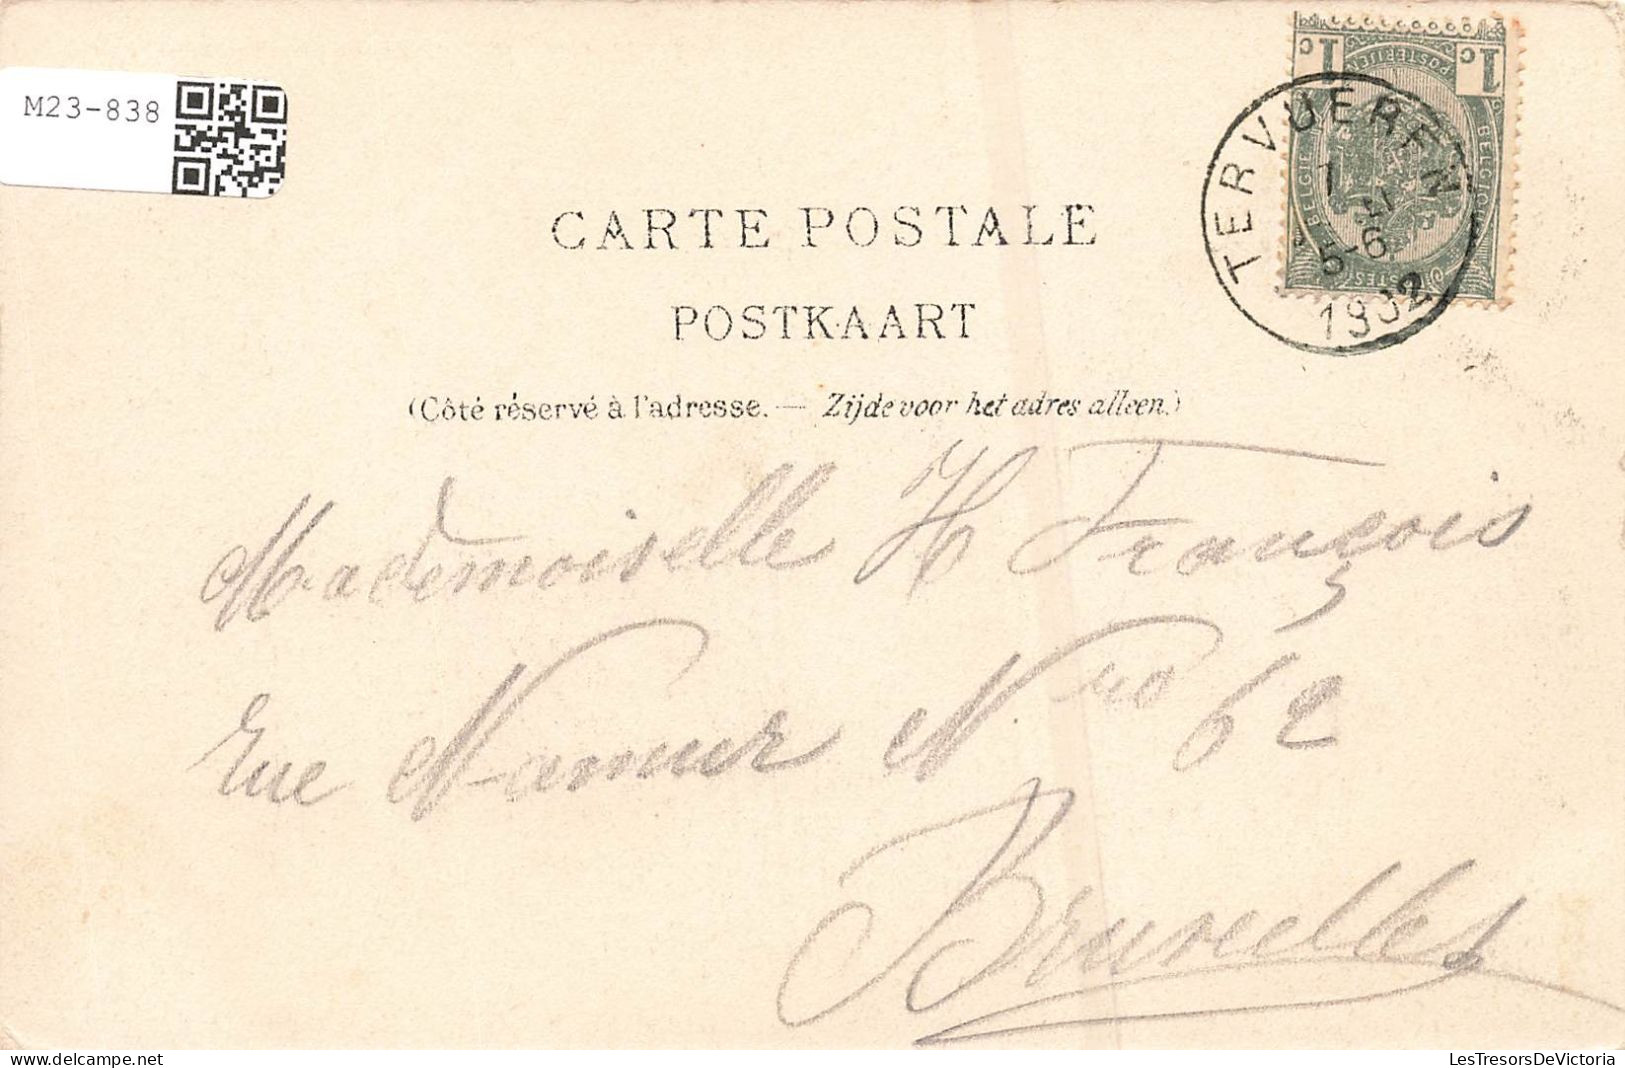 M23-838
1c 1c
POSTERIJEN
BELGIE BELGIQUE
TERVUEREN
1
5-6
1902
CARTE POSTALE
POSTKAART
(Côté réservé à l'adresse. — Zijde voor het adres alleen.)
Mademoiselle H François
Rue Namur Nro 62
Bruxelles
LesTresorsDeVictoria